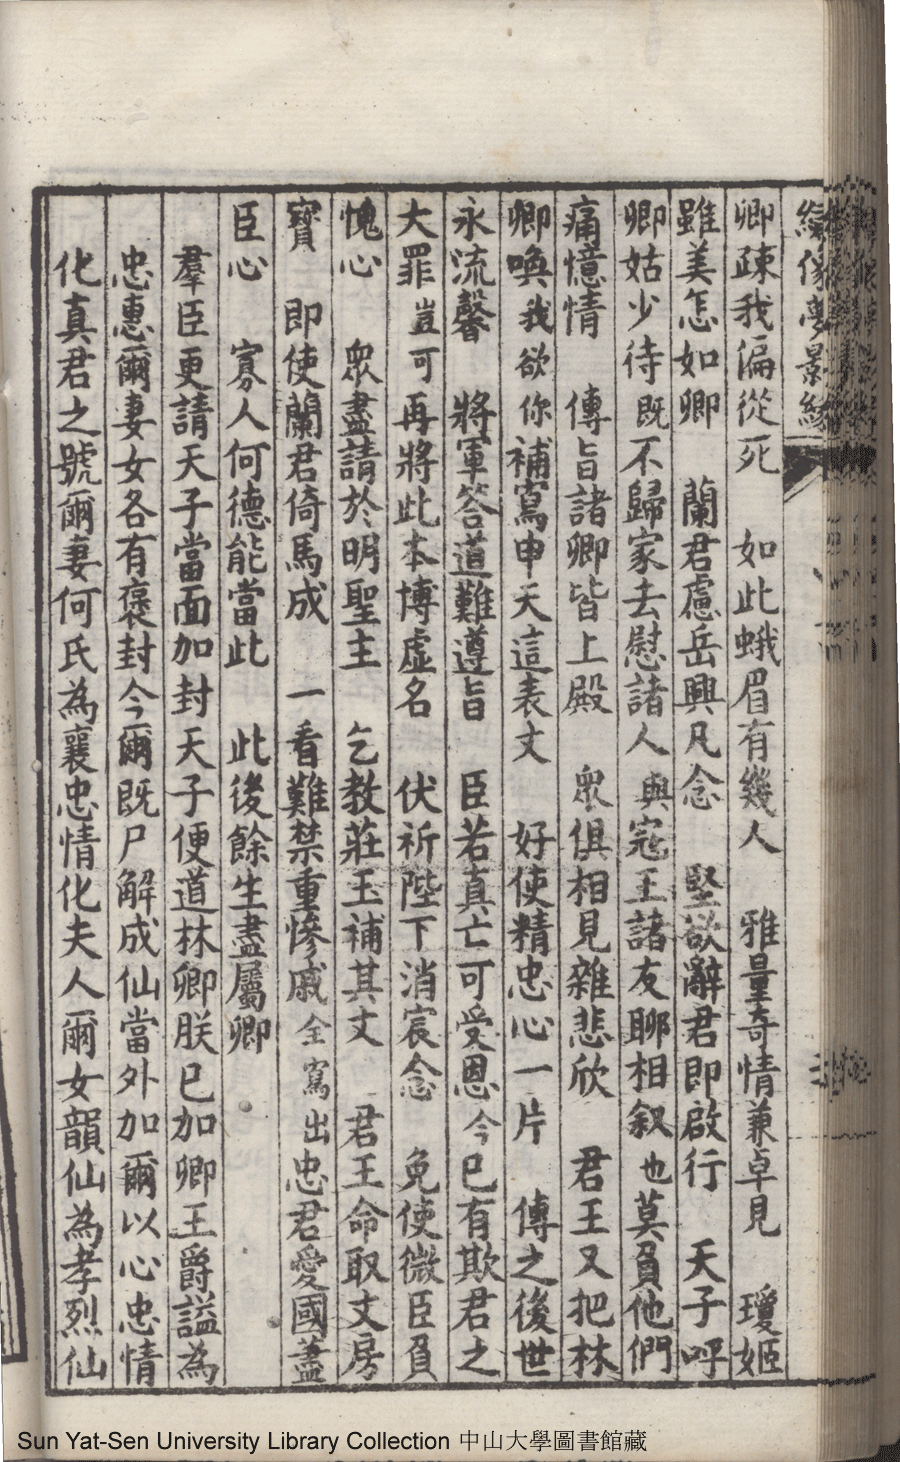 繡像夢景緣
卿疎我偏從死　如此蛾眉有幾人　雅量奇情兼卓見　瓊姬
雖美怎如卿　蘭君慮岳興凡念　堅欲辭君即啟行　天子呼
卿姑少待既不歸家去慰諸人與寇王諸友聊相叙也莫負他們
痛憶情　傳旨諸卿皆上殿　眾俱相見雜悲欣　君王又把林
卿喚我欲你補寫申天這表文　好使精忠心一片　傳之後世
永流馨　將軍答道難遵旨　臣若真亡可受恩今已有欺君之
大罪豈可再將此本博虛名　伏祈陛下消宸念　免使微臣負
愧心　眾盡請於明聖主　乞教莊玉補其文　君王命取文房
寶　即使蘭君倚馬成　一看難禁重慘戚全寫出忠君愛國藎
臣心　寡人何德能當此　此後餘生盡屬卿
羣臣更請天子當面加封天子便道林卿朕已加卿王爵謚為
忠惠爾妻女各有褒封今爾既尸解成仙當外加爾以心忠情
化真君之號爾妻何氏為襄忠情化夫人爾女韻仙為孝烈仙
Sun Yat-Sen University Library Collection 中山大學圖書館藏